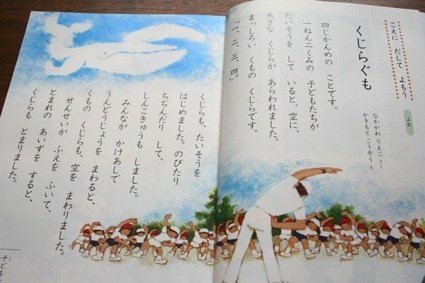 こえに だして よもう
よむ
くじらぐも
なかがわ りえこ さく
かきもと こうぞう え
四じかんめの ことです。
一ねん二くみの 子どもたちが
たいそうを して いると、空に、
大きな くじらが あらわれました。
まっしろい くもの くじらです。
「一、二、三、四。」
くじらも、たいそうを
はじめました。のびたり
ちぢんだり して、
しんこきゅうも しました。
みんなが かけあしで
うんどうじょうを まわると、
くもの くじらも、空を まわりました。
せんせいが ふえを ふいて、
とまれの あいずを すると、
くじらも とまりました。